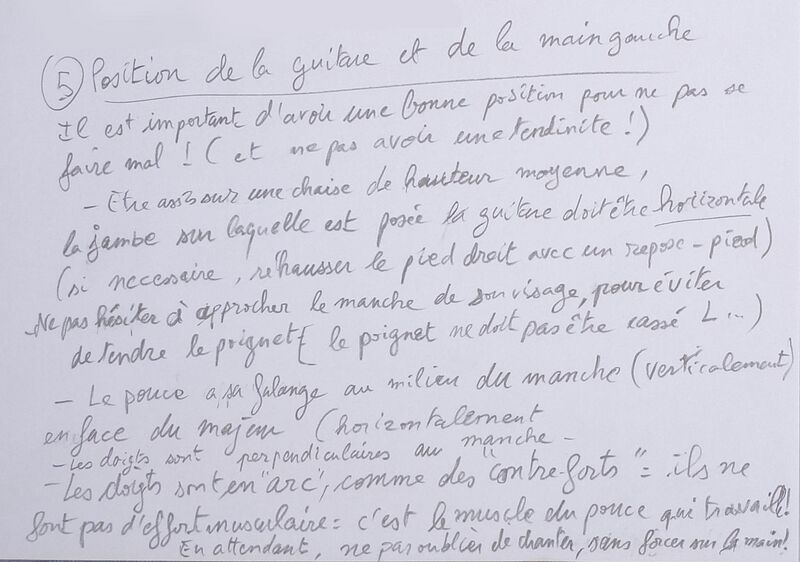 ⑤ Position de la guitare et de la main gauche
Il est important d'avoir une bonne position pour ne pas se
faire mal ! (et ne pas avoir une tendinite !)
- Etre assis sur une chaise de hauteur moyenne,
la jambe sur laquelle est posée la guitare doit être horizontale
(si necessaire, réhausser le pied droit avec un repose-pied)
- Ne pas hésiter à approcher le manche de son visage, pour éviter
de tendre le poignet ( le poignet ne doit pas être cassé L ...)
- Le pouce a sa falange au milieu du manche (verticalement)
en face du majeur (horizontalement
- Les doigts sont perpendiculaires au manche -
- Les doigts sont en "arc", comme des "contreforts" = ils ne
font pas d'effort musculaire = c'est le muscle du pouce qui travaille !
En attendant, ne pas oublier de chanter, sans forcer sur la main !